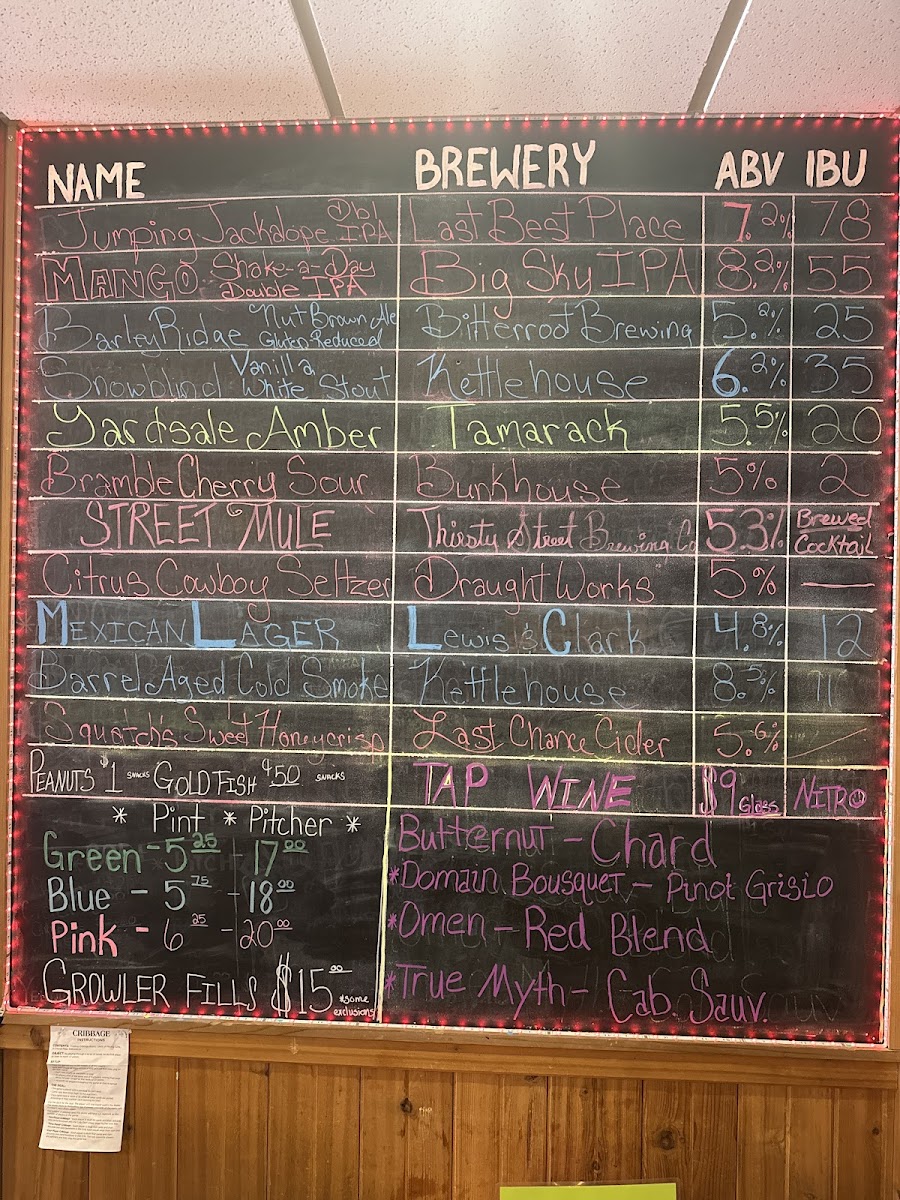 NAME BREWERY ABV IBU
Jumping Jackalope IPA Last Best Place 7.2% 78
MANGO Shake-a-Day Double IPA Big Sky IPA 8.2% 55
Barley Ridge Nut Brown Ale Gluten Reduced Bitterroot Brewing 5.2% 25
Snowblind Vanilla White Stout Kettlehouse 6.2% 35
Yardsale Amber Tamarack 5.5% 20
Bramble Cherry Sour Bunkhouse 5% 2
STREET MULE Thirsty Street Brewing Co 5.3% Brewed Cocktail
Citrus Cowboy Seltzer Draught Works 5% —
MEXICAN LAGER Lewis & Clark 4.8% 12
Barrel Aged Cold Smoke Kettlehouse 8.5% 11
Squatch's Sweet Honeycrisp Last Chance Cider 5.6%
PEANUTS $1 SNACKS GOLDFISH $.50 SNACKS TAP WINE $9 Glass NITRO
* Pint * Pitcher *
Green - 5 25 - 17 00
Blue - 5 75 - 18 00
Pink - 6 25 - 20 00
GROWLER FILLS $15 00 *some exclusions
Butternut - Chard
*Domain Bousquet - Pinot Grisio
*Omen - Red Blend
*True Myth - Cab. Sauv.
CRIBBAGE
INSTRUCTIONS